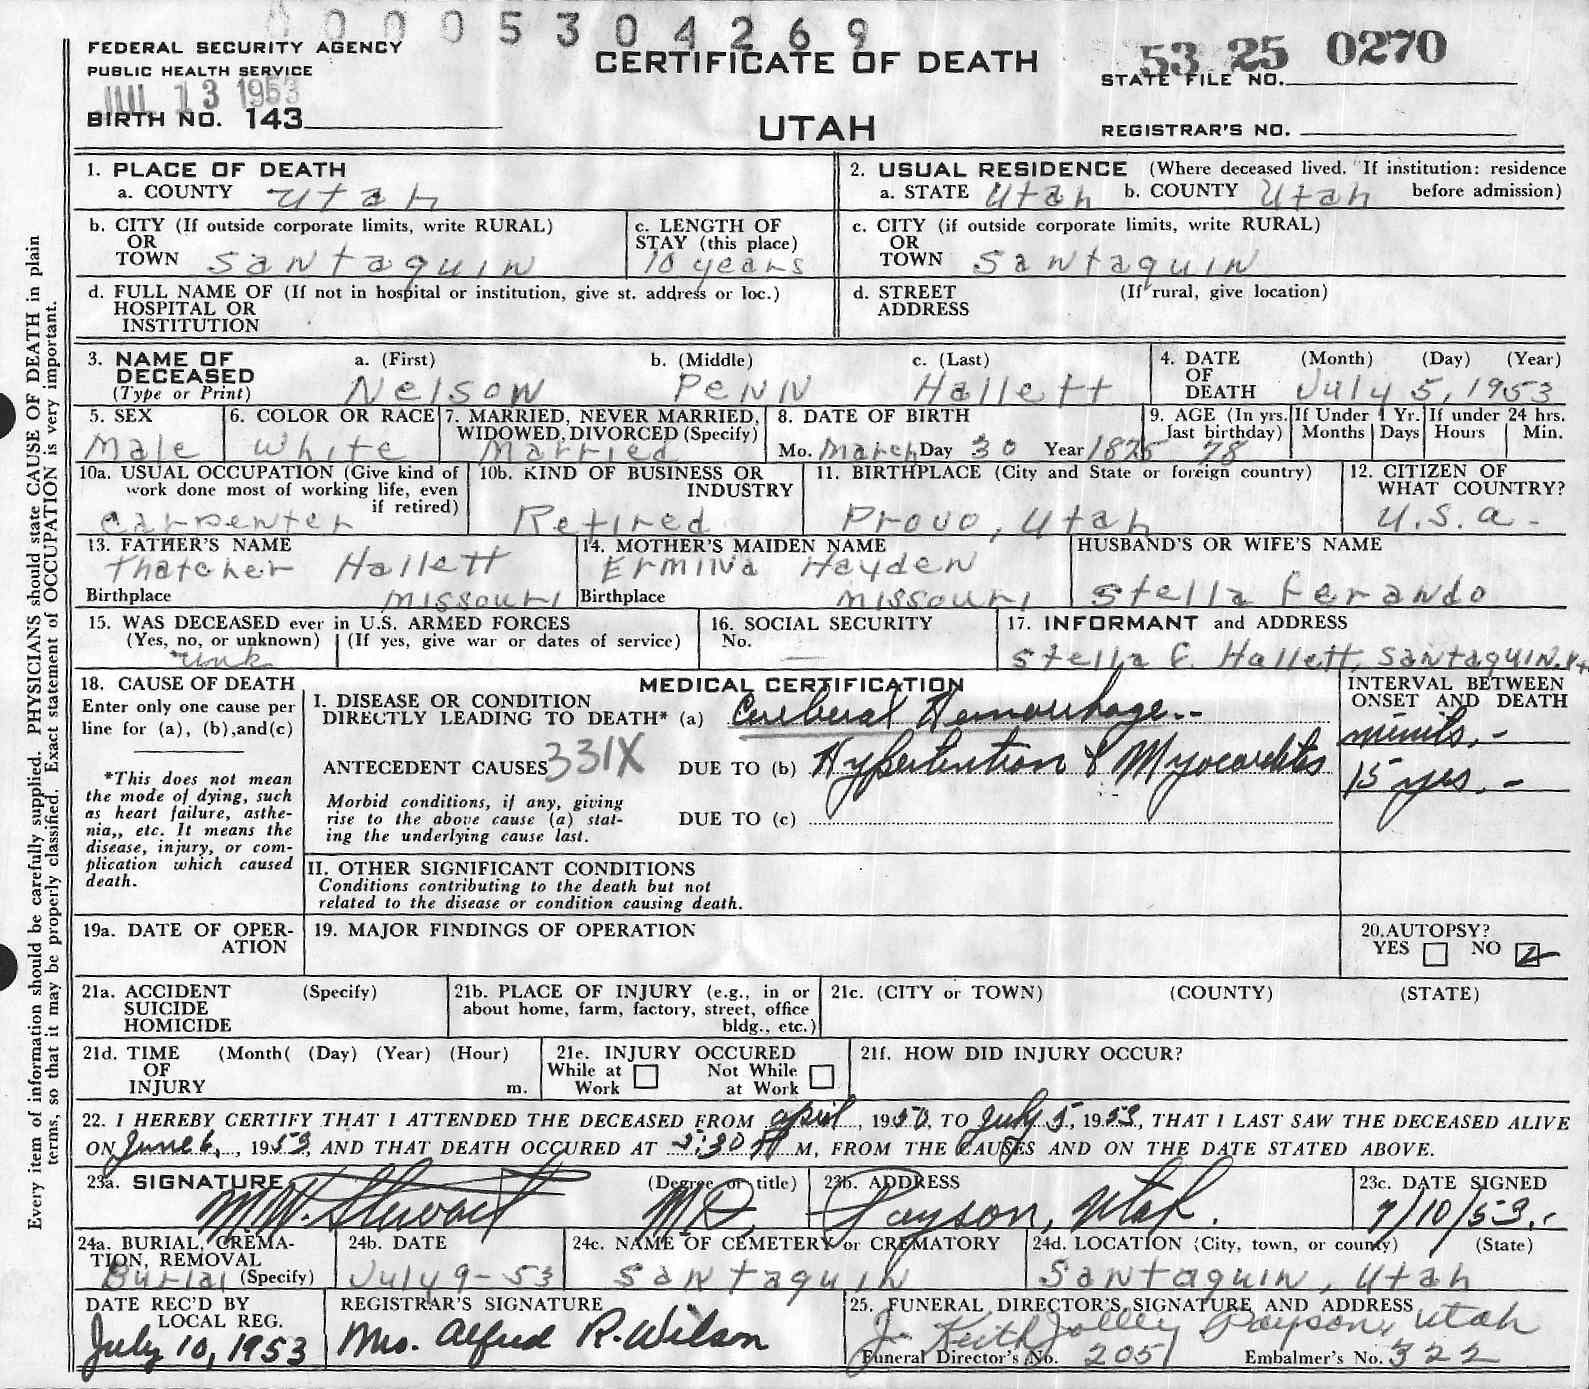 0 0 0 0 5 3 0 4 2 6 9
FEDERAL SECURITY AGENCY
PUBLIC HEALTH SERVICE
JUL 13 1953
BIRTH NO. 143
CERTIFICATE OF DEATH
UTAH
53 25 0270
STATE FILE NO.
REGISTRAR'S NO.
Every item of information should be carefully supplied. PHYSICIANS should state CAUSE OF DEATH in plain
terms, so that it may be properly classified. Exact statement of OCCUPATION is very important.
1. PLACE OF DEATH
a. COUNTY Utah
2. USUAL RESIDENCE (Where deceased lived. If institution: residence
a. STATE Utah b. COUNTY Utah before admission)
b. CITY (If outside corporate limits, write RURAL)
OR
TOWN Santaquin
c. LENGTH OF
STAY (this place)
10 years
c. CITY (if outside corporate limits, write RURAL)
OR
TOWN Santaquin
d. FULL NAME OF (If not in hospital or institution, give st. address or loc.)
HOSPITAL OR
INSTITUTION
d. STREET (If rural, give location)
ADDRESS
3. NAME OF a. (First) b. (Middle) c. (Last)
DECEASED
(Type or Print) Nelson Penn Hallett
4. DATE (Month) (Day) (Year)
OF
DEATH July 5, 1953
5. SEX
Male
6. COLOR OR RACE
White
7. MARRIED, NEVER MARRIED,
WIDOWED, DIVORCED (Specify)
Married
8. DATE OF BIRTH
Mo. March Day 30 Year 1875
9. AGE (In yrs.
last birthday)
78
If Under 1 Yr.
Months Days
If under 24 hrs.
Hours Min.
10a. USUAL OCCUPATION (Give kind of
work done most of working life, even
if retired)
Carpenter
10b. KIND OF BUSINESS OR
INDUSTRY
Retired
11. BIRTHPLACE (City and State or foreign country)
Provo, Utah
12. CITIZEN OF
WHAT COUNTRY?
U.S.a.
13. FATHER'S NAME
Thatcher Hallett
Birthplace Missouri
14. MOTHER'S MAIDEN NAME
Ermina Hayden
Birthplace Missouri
HUSBAND'S OR WIFE'S NAME
Stella Ferando
15. WAS DECEASED ever in U.S. ARMED FORCES
(Yes, no, or unknown) (If yes, give war or dates of service)
unk
16. SOCIAL SECURITY
No. —
17. INFORMANT and ADDRESS
Stella F. Hallett, Santaquin, Ut
18. CAUSE OF DEATH
Enter only one cause per
line for (a), (b), and (c)
*This does not mean
the mode of dying, such
as heart failure, asthe-
nia,, etc. It means the
disease, injury, or com-
plication which caused
death.
MEDICAL CERTIFICATION
I. DISEASE OR CONDITION
DIRECTLY LEADING TO DEATH* (a) Cerlbural Hemorrhage.-
331X
ANTECEDENT CAUSES DUE TO (b) Hypertention & Myocarditis
Morbid conditions, if any, giving
rise to the above cause (a) stat-
ing the underlying cause last.
DUE TO (c)
INTERVAL BETWEEN
ONSET AND DEATH
minits.-
15 yrs.-
II. OTHER SIGNIFICANT CONDITIONS
Conditions contributing to the death but not
related to the disease or condition causing death.
19a. DATE OF OPER-
ATION
19. MAJOR FINDINGS OF OPERATION
20. AUTOPSY?
YES NO
21a. ACCIDENT (Specify)
SUICIDE
HOMICIDE
21b. PLACE OF INJURY (e.g., in or
about home, farm, factory, street, office
bldg., etc.)
21c. (CITY or TOWN) (COUNTY) (STATE)
21d. TIME (Month( (Day) (Year) (Hour)
OF
INJURY m.
21e. INJURY OCCURED
While at Not While
Work at Work
21f. HOW DID INJURY OCCUR?
22. I HEREBY CERTIFY THAT I ATTENDED THE DECEASED FROM april, 1950, TO July 5, 1953, THAT I LAST SAW THE DECEASED ALIVE
ON June 6, 1953, AND THAT DEATH OCCURED AT :30 M, FROM THE CAUSES AND ON THE DATE STATED ABOVE.
23a. SIGNATURE (Degree or title)
M.W. Stewart M.D.
23b. ADDRESS
Payson, Utah.
23c. DATE SIGNED
7/10/53.-
24a. BURIAL, CREMA-
TION, REMOVAL
Burial (Specify)
24b. DATE
July 9-53
24c. NAME OF CEMETERY or CREMATORY
Santaquin
24d. LOCATION (City, town, or county) (State)
Santaquin, Utah
DATE REC'D BY
LOCAL REG.
July 10, 1953
REGISTRAR'S SIGNATURE
Mrs. Alfred R. Wilson
25. FUNERAL DIRECTOR'S SIGNATURE AND ADDRESS
J. Keith Jolley Payson, Utah
Funeral Director's No. 205 Embalmer's No. 322